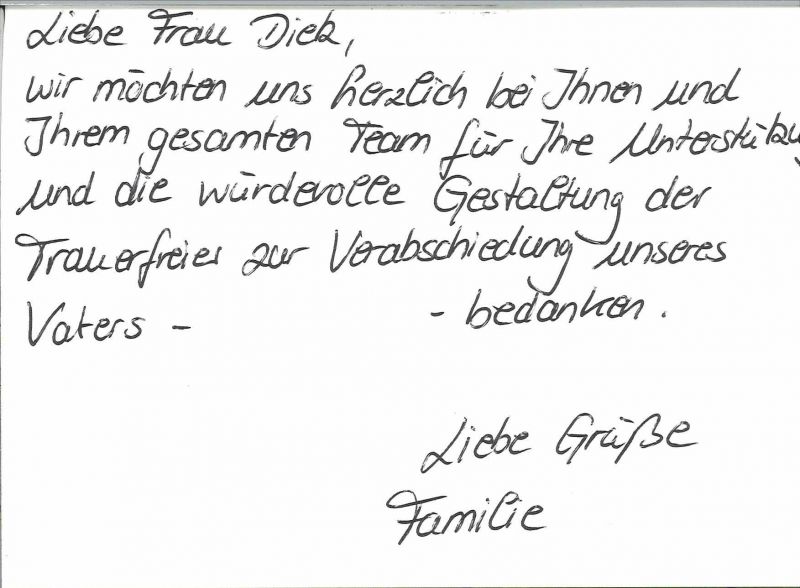 Liebe Frau Diek,
wir möchten uns herzlich bei Ihnen und
Ihrem gesamten Team für Ihre Unterstützu
und die würdevolle Gestaltung der
Trauerfreier zur Verabschiedung unseres
Vaters - - bedanken.
Liebe Grüße
Familie